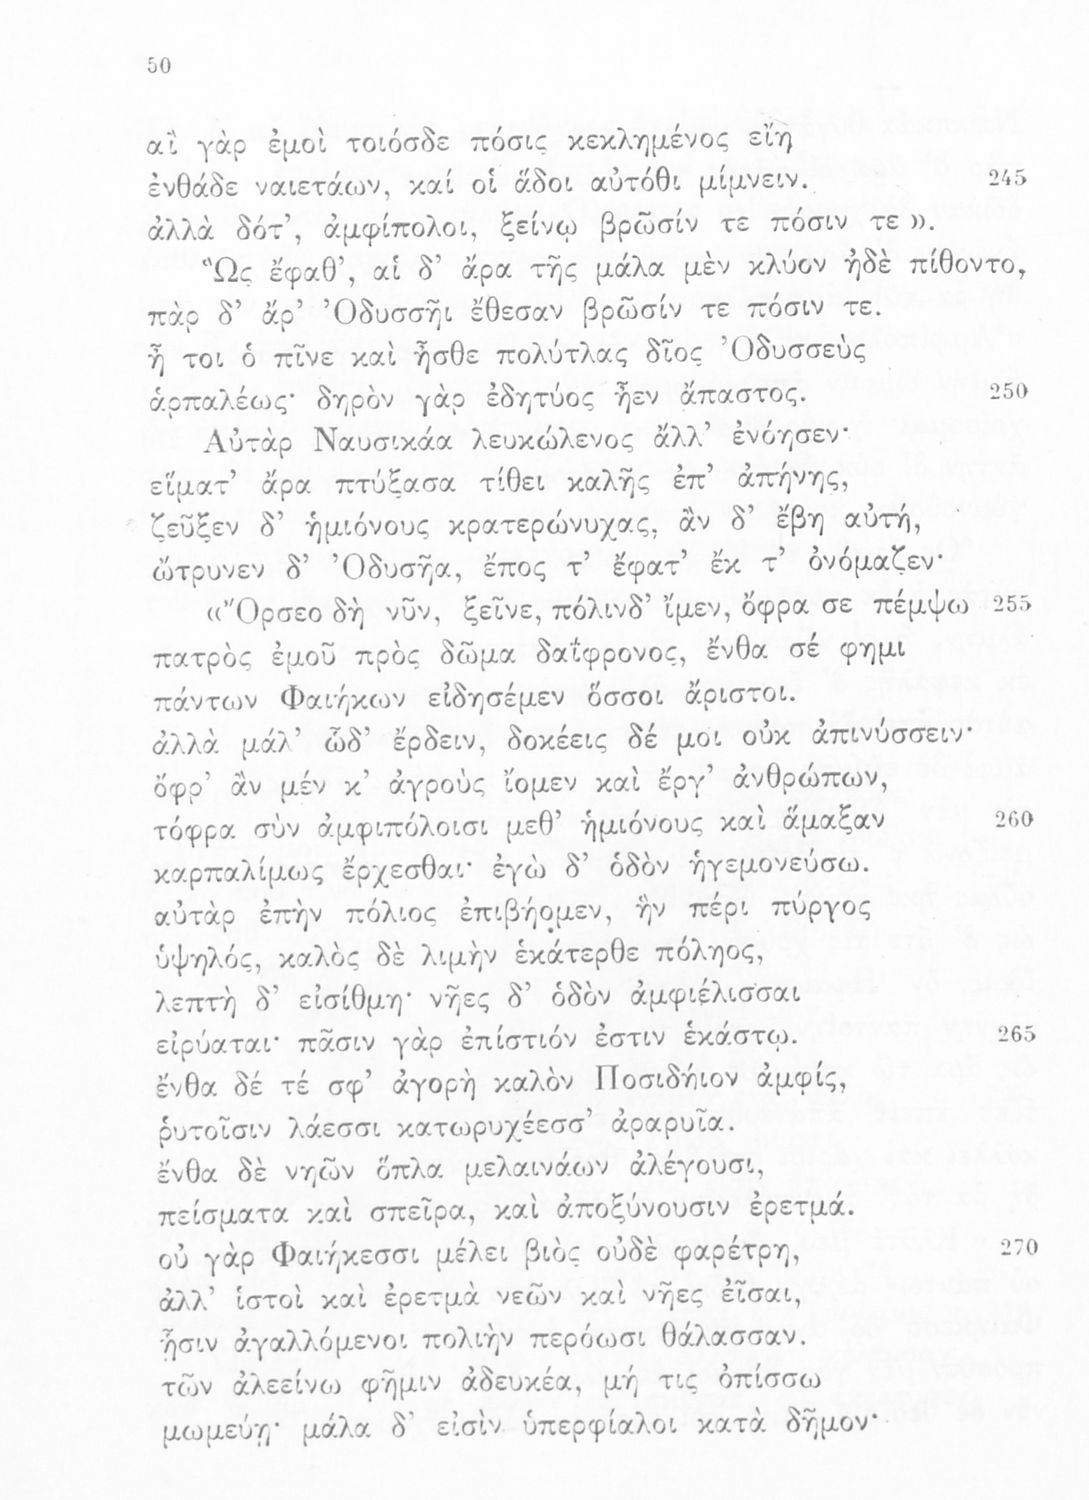 50
αἲ γὰρ ἐμοὶ τοιόσδε πόσις κεκλημένος εἴη
ἐνθάδε ναιετάων, καί οἱ ἅδοι αὐτόθι μίμνειν. 245
ἀλλὰ δότ’, ἀμφίπολοι, ξείνῳ βρῶσίν τε πόσιν τε ».
Ὣς ἔφαθ’, αἱ δ’ ἄρα τῆς μάλα μὲν κλύον ἠδὲ πίθοντο,
πὰρ δ’ ἄρ’ Ὀδυσσῆι ἔθεσαν βρῶσίν τε πόσιν τε.
ἦ τοι ὁ πῖνε καὶ ἦσθε πολύτλας δῖος Ὀδυσσεὺς
ἁρπαλέως· δηρὸν γὰρ ἐδητύος ἦεν ἄπαστος. 250
Αὐτὰρ Ναυσικάα λευκώλενος ἄλλ’ ἐνόησεν·
εἵματ’ ἄρα πτύξασα τίθει καλῆς ἐπ’ ἀπήνης,
ζεῦξεν δ’ ἡμιόνους κρατερώνυχας, ἂν δ’ ἔβη αὐτή,
ὤτρυνεν δ’ Ὀδυσῆα, ἔπος τ’ ἔφατ’ ἔκ τ’ ὀνόμαζεν·
« Ὄρσεο δὴ νῦν, ξεῖνε, πόλινδ’ ἴμεν, ὄφρα σε πέμψω 255
πατρὸς ἐμοῦ πρὸς δῶμα δαΐφρονος, ἔνθα σέ φημι
πάντων Φαιήκων εἰδησέμεν ὅσσοι ἄριστοι.
ἀλλὰ μάλ’ ὧδ’ ἔρδειν, δοκέεις δέ μοι οὐκ ἀπινύσσειν·
ὄφρ’ ἂν μέν κ’ ἀγροὺς ἴομεν καὶ ἔργ’ ἀνθρώπων,
τόφρα σὺν ἀμφιπόλοισι μεθ’ ἡμιόνους καὶ ἅμαξαν 260
καρπαλίμως ἔρχεσθαι· ἐγὼ δ’ ὁδὸν ἡγεμονεύσω.
αὐτὰρ ἐπὴν πόλιος ἐπιβήομεν, ἣν πέρι πύργος
ὑψηλός, καλὸς δὲ λιμὴν ἑκάτερθε πόληος,
λεπτὴ δ’ εἰσίθμη· νῆες δ’ ὁδὸν ἀμφιέλισσαι
εἰρύαται· πᾶσιν γὰρ ἐπίστιόν ἐστιν ἑκάστῳ. 265
ἔνθα δέ τέ σφ’ ἀγορὴ καλὸν Ποσιδήιον ἀμφίς,
ῥυτοῖσιν λάεσσι κατωρυχέεσσ’ ἀραρυῖα.
ἔνθα δὲ νηῶν ὅπλα μελαινάων ἀλέγουσι,
πείσματα καὶ σπεῖρα, καὶ ἀποξύνουσιν ἐρετμά.
οὐ γὰρ Φαιήκεσσι μέλει βιὸς οὐδὲ φαρέτρη, 270
ἀλλ’ ἱστοὶ καὶ ἐρετμὰ νεῶν καὶ νῆες ἐῖσαι,
ᾗσιν ἀγαλλόμενοι πολιὴν περόωσι θάλασσαν.
τῶν ἀλεείνω φῆμιν ἀδευκέα, μή τις ὀπίσσω
μωμεύῃ· μάλα δ’ εἰσὶν ὑπερφίαλοι κατὰ δῆμον·